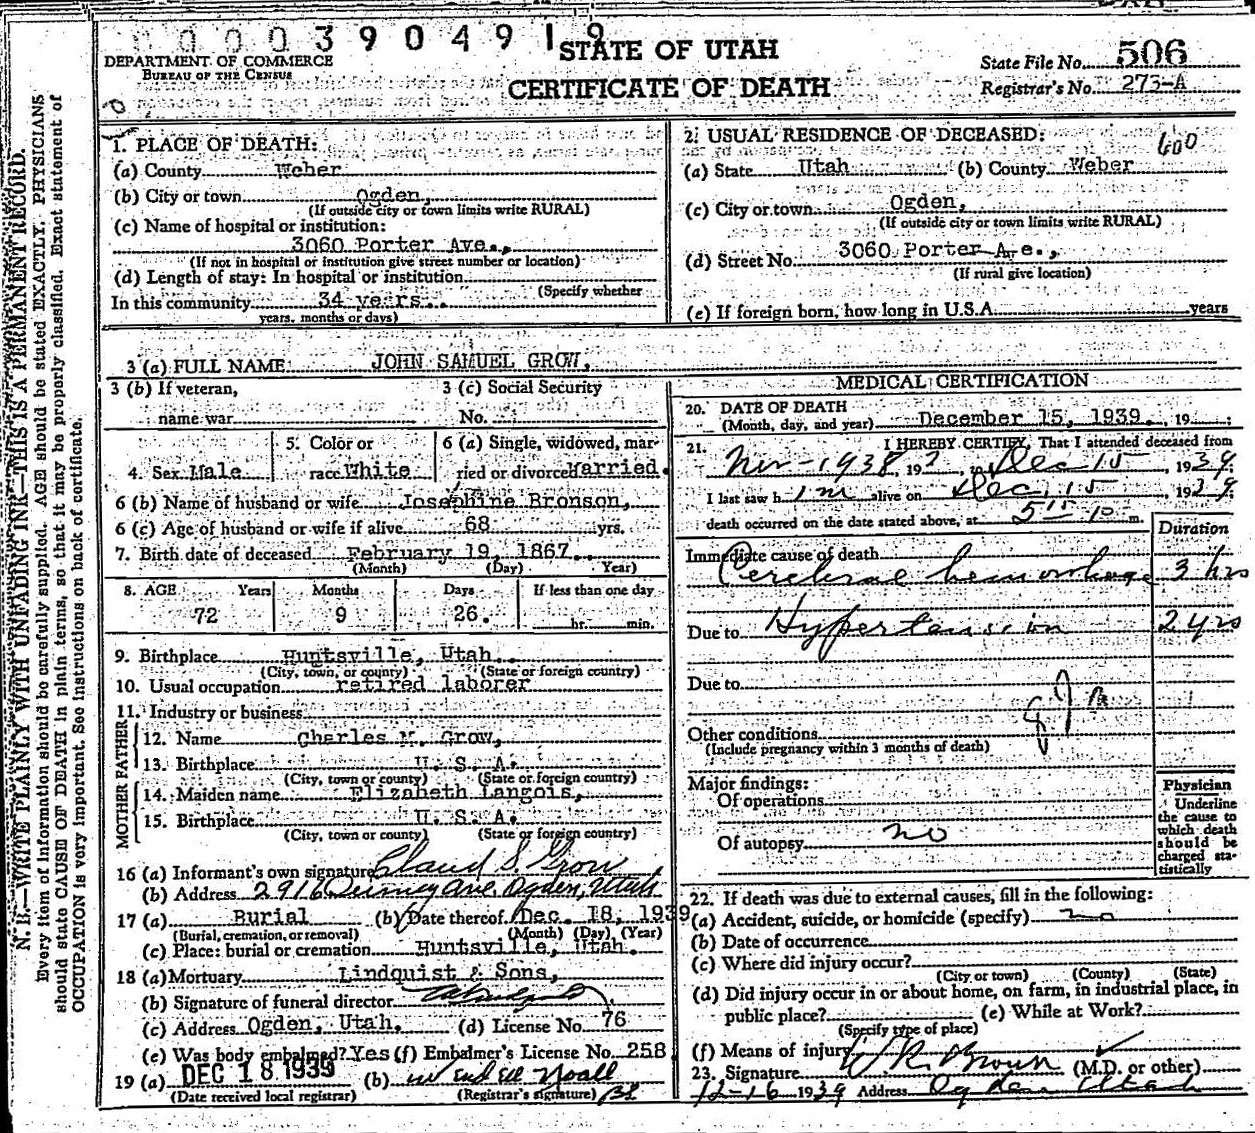 0003904919
STATE OF UTAH
CERTIFICATE OF DEATH
DEPARTMENT OF COMMERCE
BUREAU OF THE CENSUS
State File No. 506
Registrar's No. 273-A
N. B.—WRITE PLAINLY WITH UNFADING INK—THIS IS A PERMANENT RECORD.
Every item of information should be carefully supplied. AGE should be stated EXACTLY. PHYSICIANS
should state CAUSE OF DEATH in plain terms, so that it may be properly classified. Exact statement of
OCCUPATION is very important. See instructions on back of certificate.
1. PLACE OF DEATH:
(a) County Weber
(b) City or town Ogden,
(If outside city or town limits write RURAL)
(c) Name of hospital or institution:
3060 Porter Ave.,
(If not in hospital or institution give street number or location)
(d) Length of stay: In hospital or institution
(Specify whether
In this community 34 years.
years, months or days)
2. USUAL RESIDENCE OF DECEASED: 600
(a) State Utah (b) County Weber
(c) City or town Ogden,
(If outside city or town limits write RURAL)
(d) Street No. 3060 Porter Ave.,
(If rural give location)
(e) If foreign born, how long in U.S.A. years
3 (a) FULL NAME JOHN SAMUEL GROW,
3 (b) If veteran,
name war
3 (c) Social Security
No.
4. Sex Male
5. Color or
race White
6 (a) Single, widowed, mar-
ried or divorced Married.
6 (b) Name of husband or wife Josephine Bronson,
6 (c) Age of husband or wife if alive 68 yrs.
7. Birth date of deceased February 19, 1867.
(Month) (Day) Year)
8. AGE Years Months Days If less than one day
72 9 26. hr. min.
9. Birthplace Huntsville, Utah.
(City, town, or county) (State or foreign country)
10. Usual occupation retired laborer
11. Industry or business
FATHER
12. Name Charles M. Grow,
13. Birthplace U. S. A.
(City, town or county) (State or foreign country)
MOTHER
14. Maiden name Elizabeth Langois,
15. Birthplace U. S. A.
(City, town or county) (State or foreign country)
16 (a) Informant's own signature Claud S. Grow
(b) Address 2916 Quincy Ave. Ogden, Utah
17 (a) Burial (b) Date thereof Dec. 18, 1939
(Burial, cremation, or removal) (Month) (Day) (Year)
(c) Place: burial or cremation Huntsville, Utah.
18 (a) Mortuary Lindquist & Sons,
(b) Signature of funeral director
(c) Address Ogden, Utah. (d) License No. 76
(e) Was body embalmed? Yes (f) Embalmer's License No. 258
19 (a) DEC 18 1939 (b) Wendell Noall
(Date received local registrar) (Registrar's signature)
MEDICAL CERTIFICATION
20. DATE OF DEATH
(Month, day, and year) December 15, 1939. , 19 ;
21. I HEREBY CERTIFY, That I attended deceased from
Nov - 1938, 19 , to Dec 15 , 1939,
I last saw h im alive on Dec 15 , 1939,
death occurred on the date stated above, at 5 15 p m.
Duration
Immediate cause of death
Cerebral hemorrhage 3 hrs
Due to Hypertension 2 yrs
Due to
Other conditions
(Include pregnancy within 3 months of death)
Major findings:
Of operations
Of autopsy no
Physician
Underline
the cause to
which death
should be
charged sta-
tistically
22. If death was due to external causes, fill in the following:
(a) Accident, suicide, or homicide (specify) no
(b) Date of occurrence
(c) Where did injury occur?
(City or town) (County) (State)
(d) Did injury occur in or about home, on farm, in industrial place, in
public place? (e) While at Work?
(Specify type of place)
(f) Means of injury
23. Signature W R Brown (M.D. or other)
12-16 1939 Address Ogden Utah